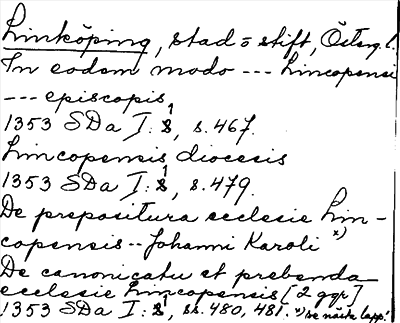 Linköping, stad o stift, Österg. l.
In eodem modo --- Lincopensi
--- episcopis
1353 SDa I:1, s. 467.
Lincopensis diocesis
1353 SDa I:1, s. 479.
De prepositura ecclesie Lin-
copensis -- Johanni Karoli x)
De canonicatu et prebenda
ecclesie Lincopensis [2 ggr]
1353 SDa I:1, ss. 480, 481. x) se nästa lapp!